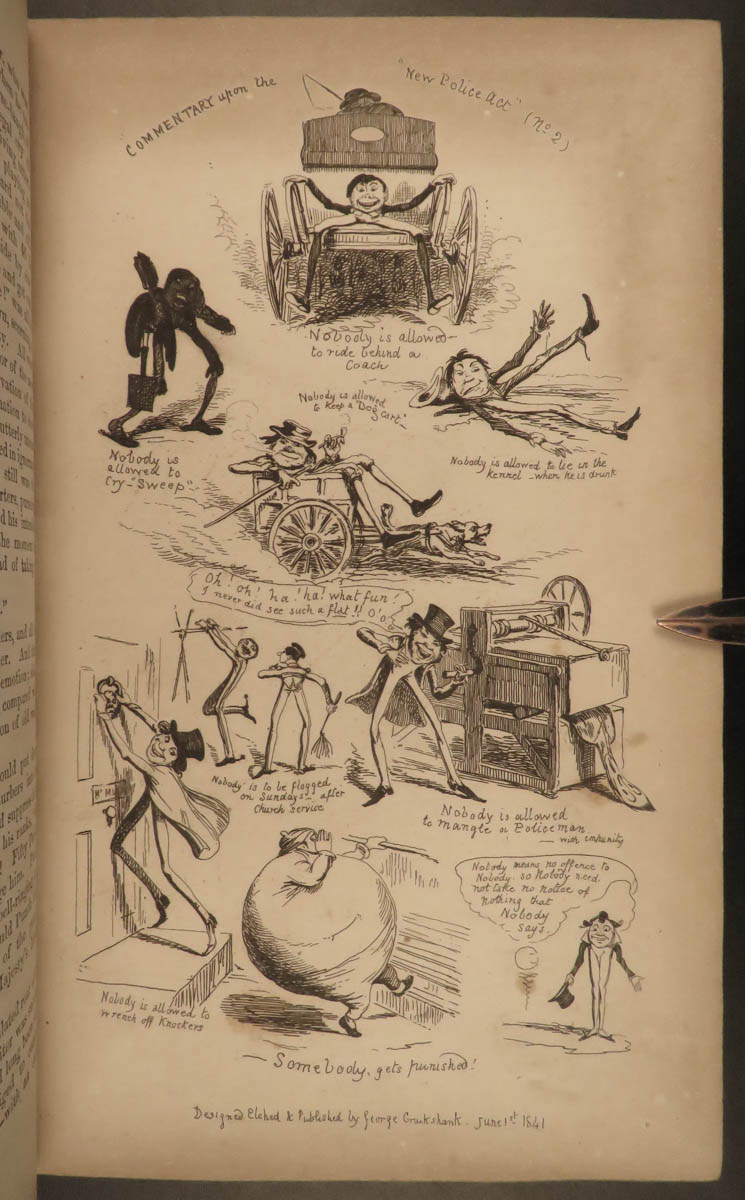 COMMENTARY upon the "New Police Act" (No 2)
Nobody is allowed
to ride behind a
Coach
Nobody is
allowed to
Cry-"Sweep"
Nobody is allowed
to keep a "Dog Cart"
Nobody is allowed to lie in the
Kennel - when he is drunk
Oh! oh! ha! ha! what fun!
I never did see such a flat!! O'o
Nobody is to be flogged
on Sundays - after
Church Service
Nobody is allowed
to mangle a Policeman
— with impunity
Nobody is allowed to
wrench off Knockers
Nobody means no offence to
Nobody. so Nobody need
not take no notice of
nothing that
Nobody
says
— Somebody, gets punished!
Designed Etched & Published by George Cruikshank - June 1st 1841